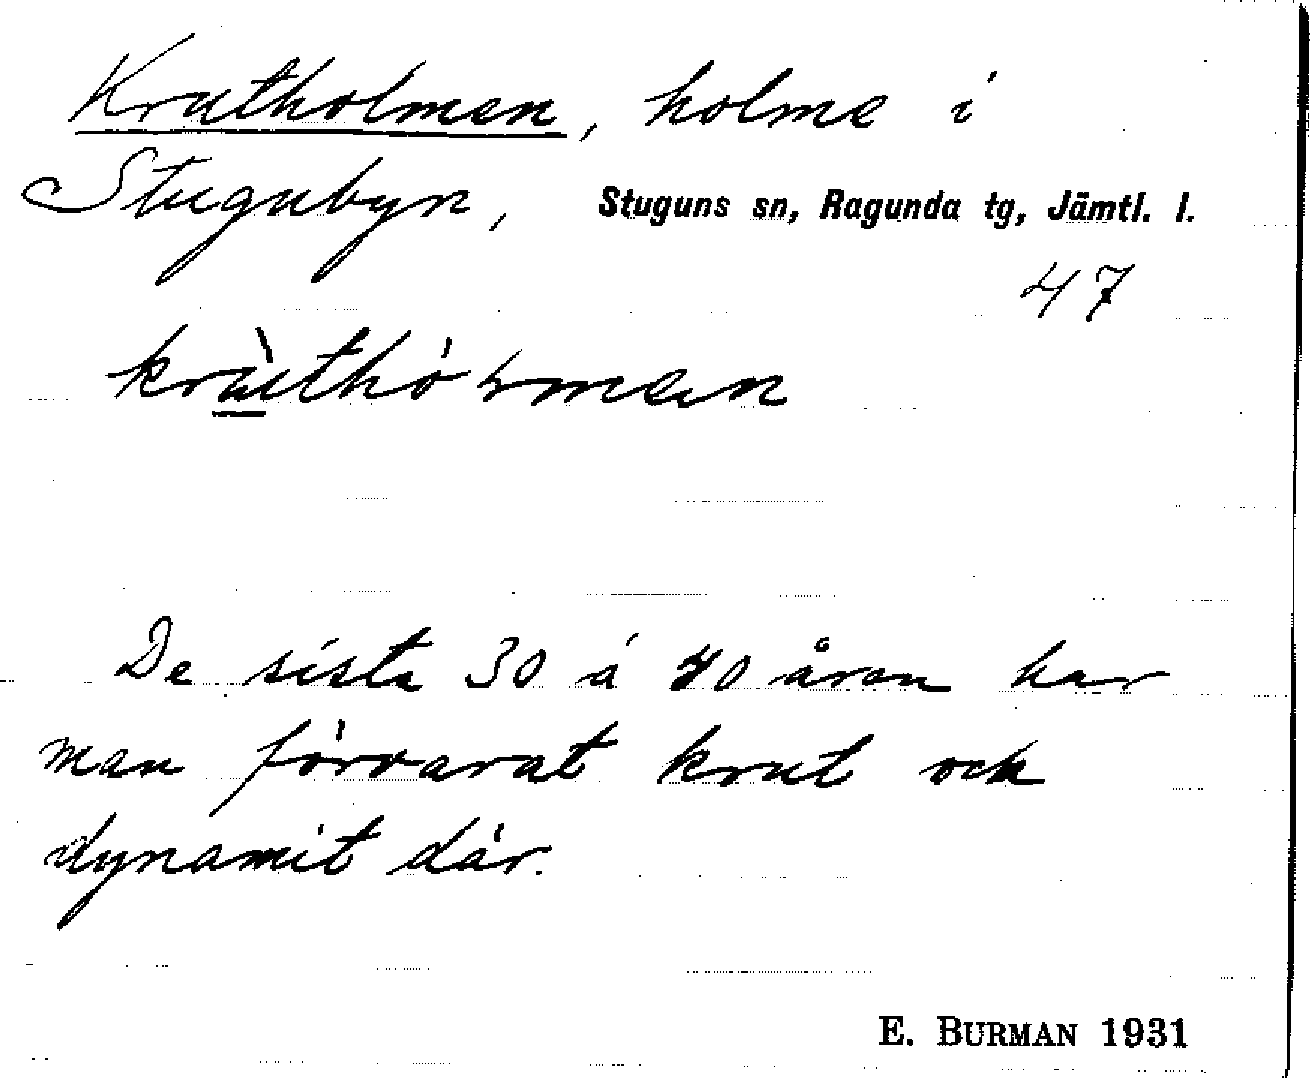 Krutholmen, holme i
Stugubyn, Stuguns sn, Ragunda tg, Jämtl. l.
47
De sista 30 á 40 åren har
man förvarat krut och
dynamit där.
E. BURMAN 1931